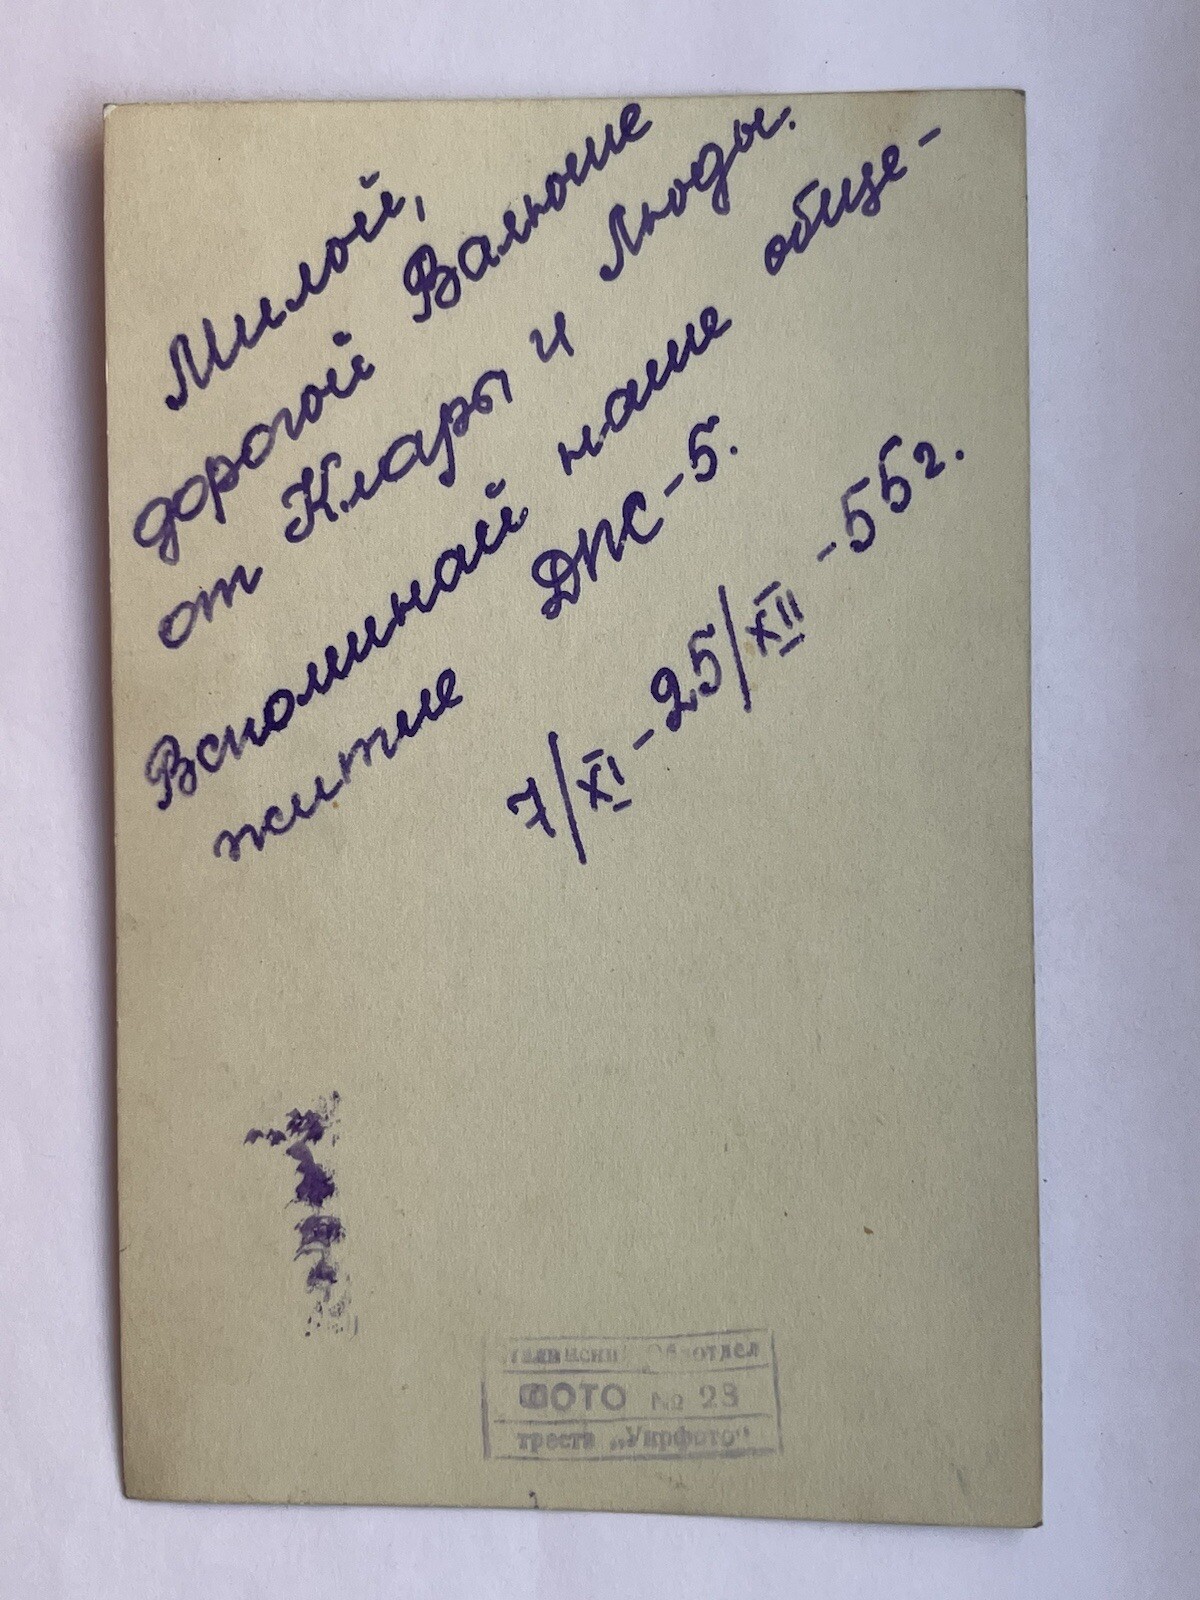 Милой,
дорогой Валюше
от Клары и Люды.
Вспоминай наше обще-
житие ДПС-5.
7/XI-25/XII-55г.
ФОТО № 28
треста „Укрфото"